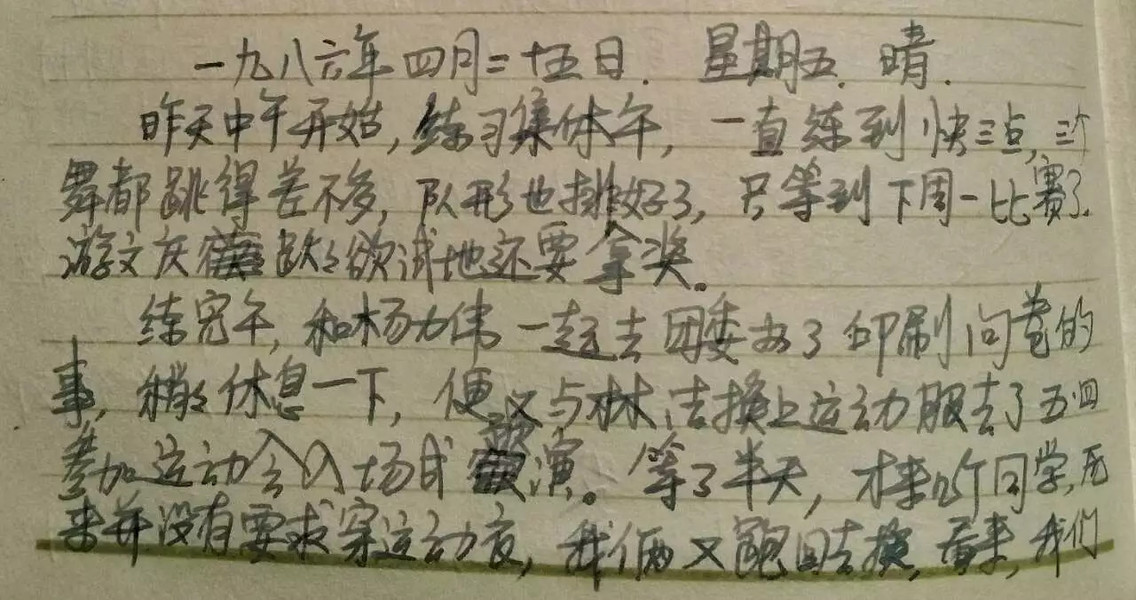 一九八六年四月二十五日. 星期五. 晴.
昨天中午开始, 练习集体午, 一直练到快三点, 三个
舞都跳得差不多, 队形也排好了, 只等到下周一比赛了.
游文庆 跃々欲试地还要拿奖。
练完午, 和杨力伟一起去团委办了印刷问卷的
事, 稍々休息一下, 便又与林洁换上运动服去了五四
参加运动会入场式 演。等了半天, 才来几个同学, 后
来并没有要求穿运动衣, 我俩又跑回去换, 看来, 我们